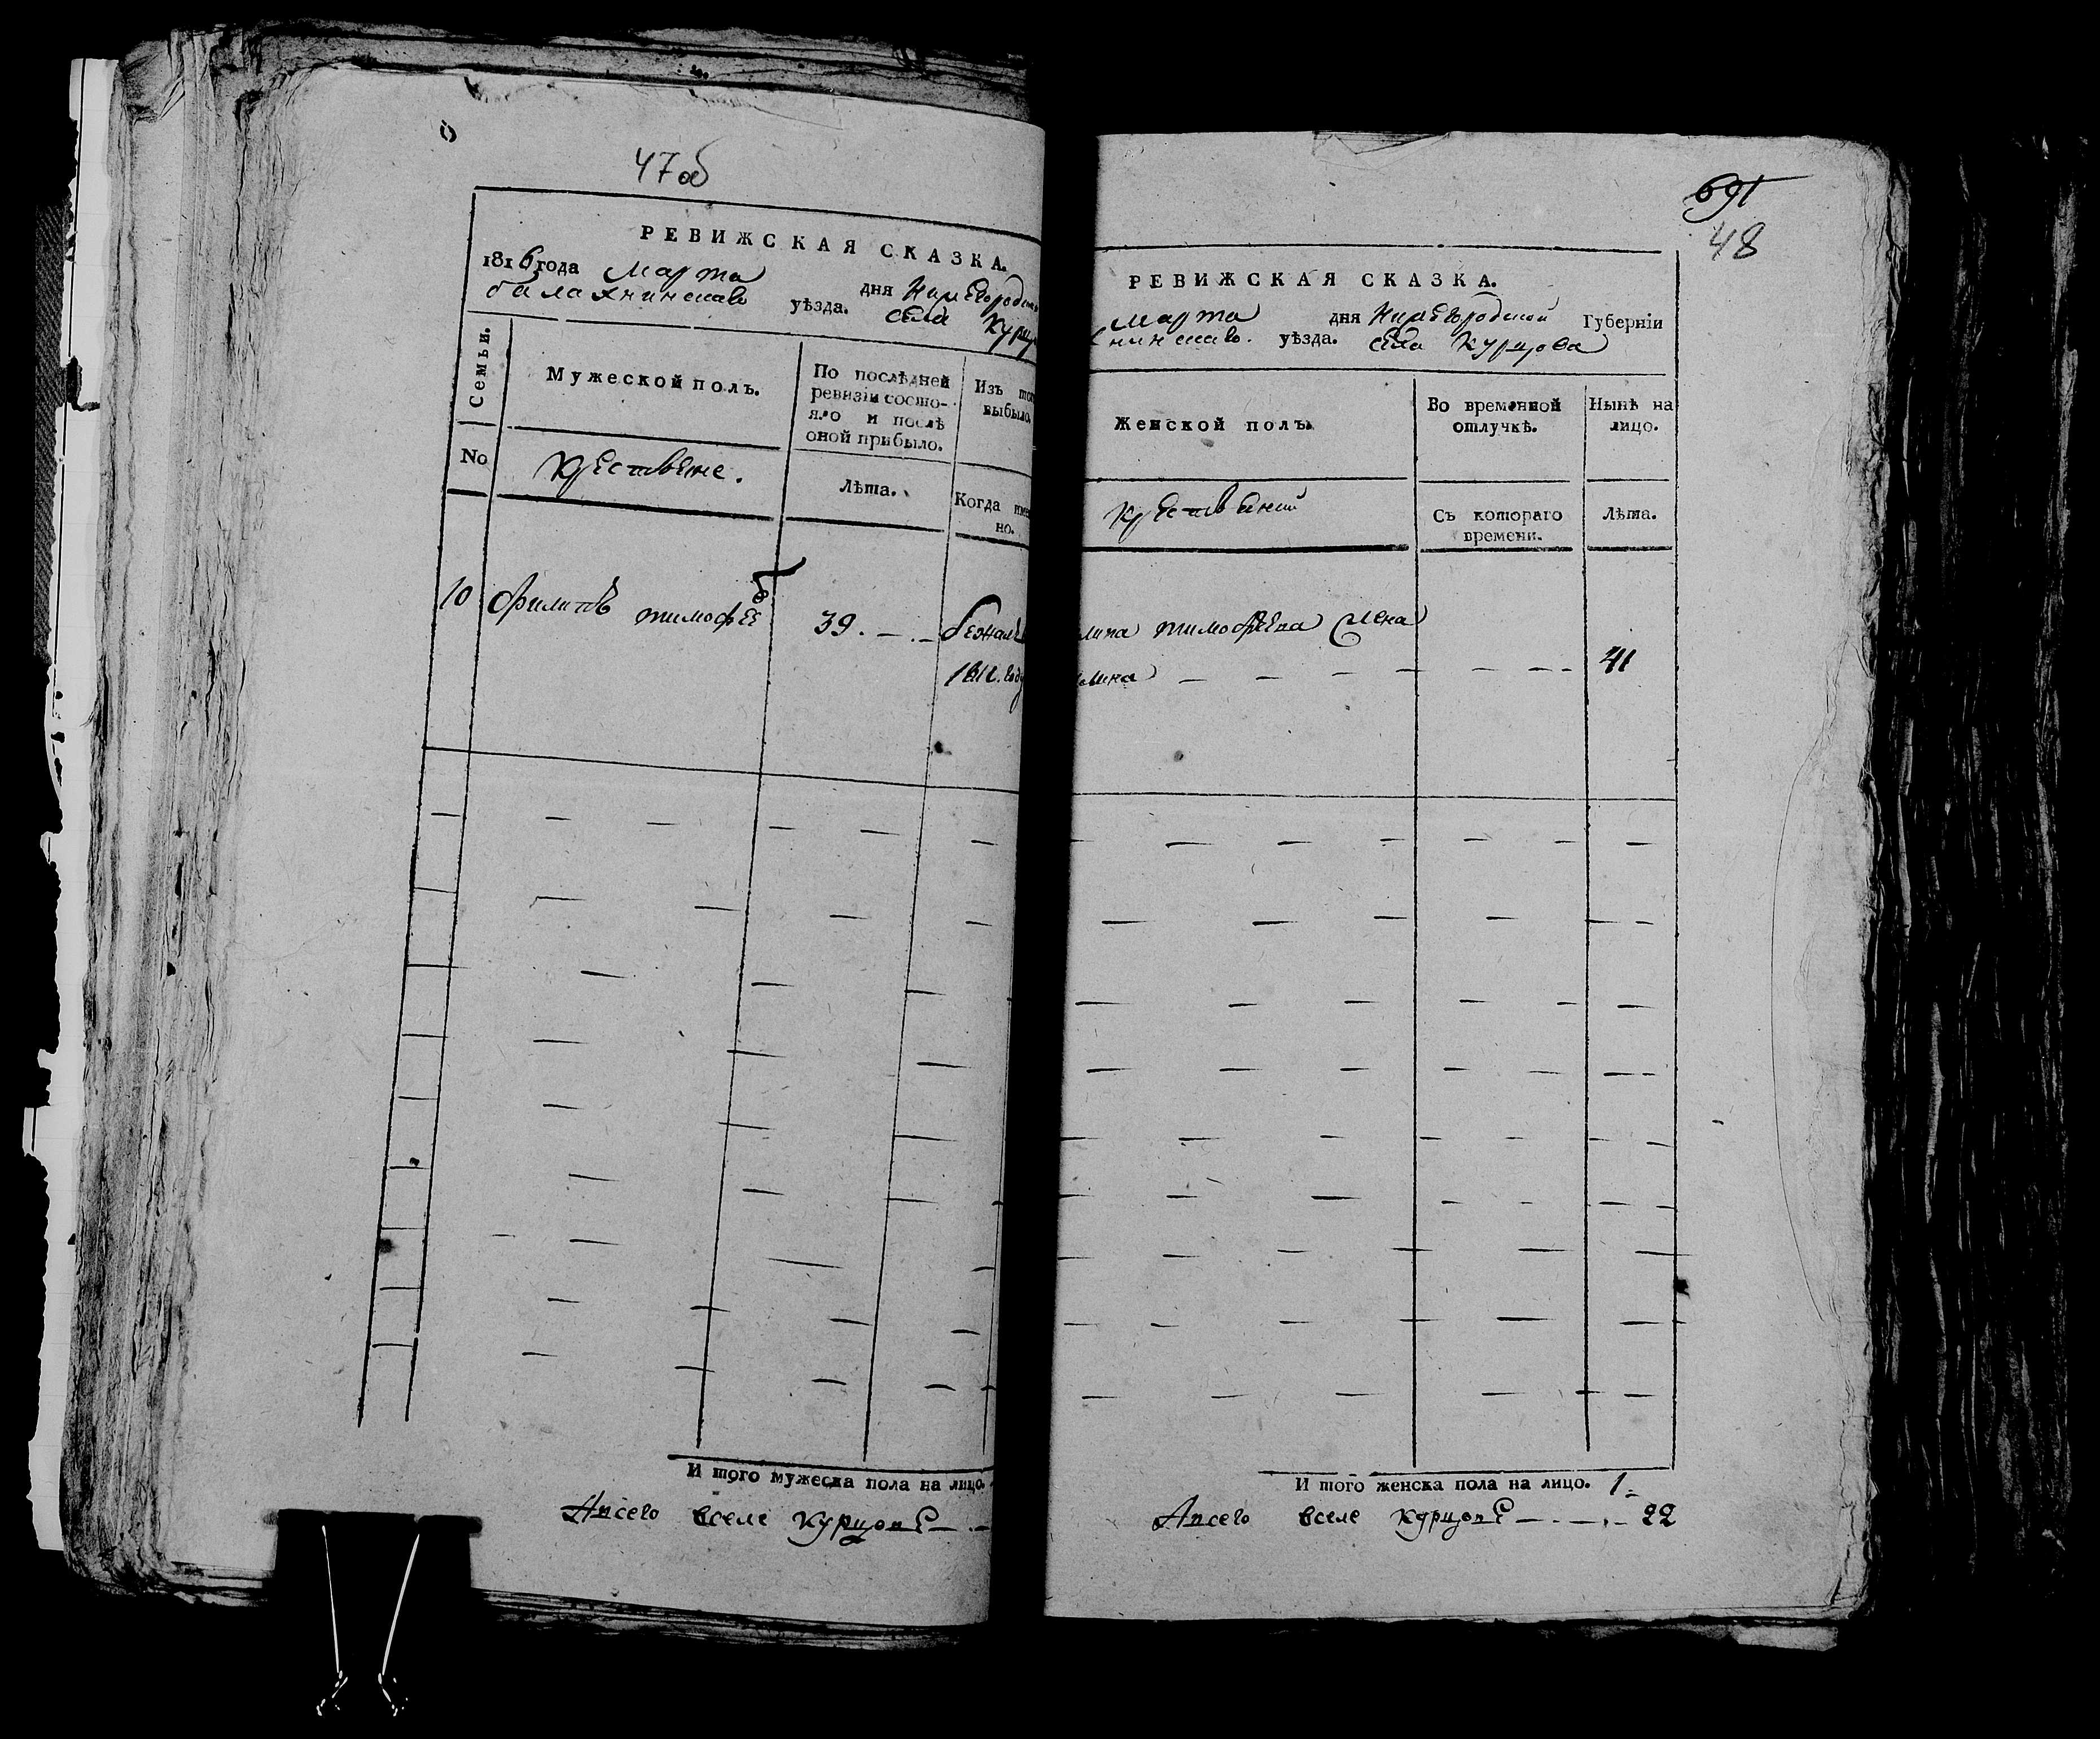 47об
РЕВИЖСКАЯ СКАЗКА.
1816 года Марта дня Нижегородско
балахнинскаго уѣзда. села Курц
Семьи.
Мужеской полъ.
По послѣдней
ревизіи состо-
яло и послѣ
оной прибыло.
Изъ того
выбыло.
No
Крестьяне.
Лѣта.
Когда име
но.
10 Филипъ тимофѣевъ 39. бежалъ
году
И того мужеска пола на лицо.
Авсего вселе курцовѣ
691
48
РЕВИЖСКАЯ СКАЗКА.
Марта дня Нижегородской Губерніи
нинскаго. уѣзда. села Курцова
Женской полъ.
Во временной
отлучкѣ.
Нынѣ на
лицо.
Съ котораго
времени.
Лѣта.
липа тимофѣева жена
41
И того женска пола на лицо. 1
Авсего вселе курцовѣ 22